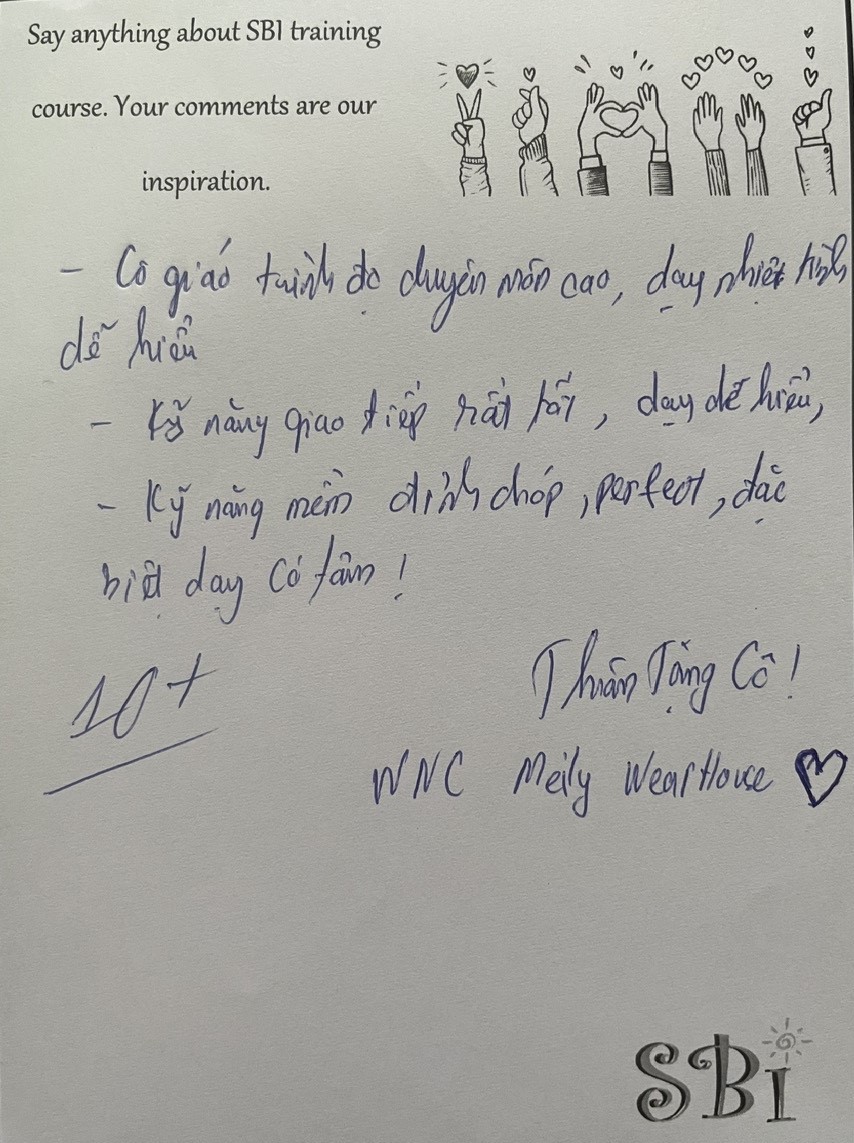 Say anything about SBI training
course. Your comments are our
inspiration.
- Cô giáo trình độ chuyên môn cao, dạy nhiệt tình
dễ hiểu
- Kỹ năng giao tiếp rất tốt, dạy dễ hiểu,
- Kỹ năng mềm đỉnh chóp, perfect, đặc
biệt dạy có tâm!
Thân Tặng Cô!
10+
WNC Meily WearHouse ♡
SBI